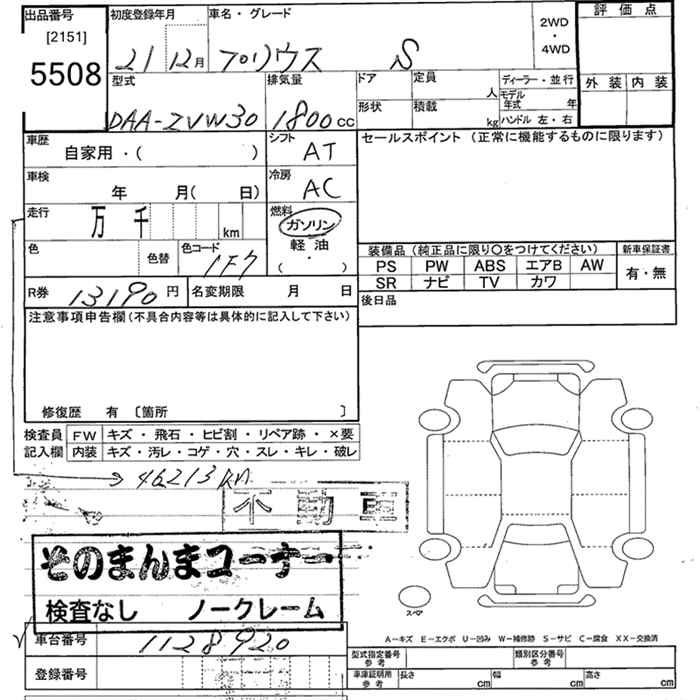 出品番号
[2151]
5508
初度登録年月
21 12月
車名・グレード
プリウス S
2WD
・
4WD
評価点
外装 内装
型式
DAA-ZVW30
排気量
1800cc
ドア
定員
人
形状
積載
kg
ディーラー・並行
モデル年式 年
ハンドル 左・右
車歴
自家用・( )
シフト
AT
セールスポイント (正常に機能するものに限ります)
車検
年 月( 日)
冷房
AC
走行
万 千 km
燃料
ガソリン
軽油
・
( )
色
色替
色コード
1F7
装備品 (純正品に限り〇をつけてください)
PS PW ABS エアB AW
SR ナビ TV カワ
新車保証書
有・無
R券 13190円
名変期限 月 日
後日品
注意事項申告欄(不具合内容等は具体的に記入して下さい)
修復歴 有 〔箇所 〕
検査員記入欄
FW キズ・飛石・ヒビ割・リペア跡・×要
内装 キズ・汚レ・コゲ・穴・スレ・キレ・破レ
46213km
不動車
そのまんまコーナー
検査なし ノークレーム
車台番号 1128920
登録番号
スペア
A-キズ E-エクボ U-凹み W-補修跡 S-サビ C-腐食 XX-交換済
型式指定番号
参考
類別区分番号
参考
車庫証明用
参考
長さ cm 幅 cm 高さ cm